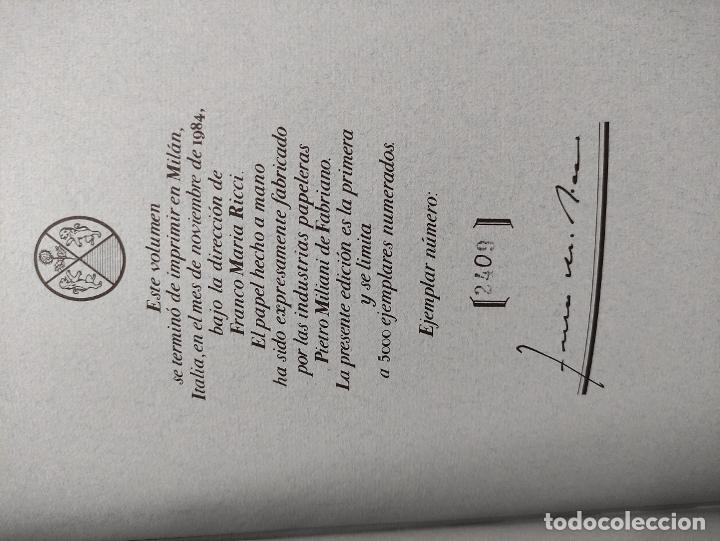 Este volumen
se terminó de imprimir en Milán,
Italia, en el mes de noviembre de 1984,
bajo la dirección de
Franco Maria Ricci.
El papel hecho a mano
ha sido expresamente fabricado
por las industrias papeleras
Pietro Miliani de Fabriano.
La presente edición es la primera
y se limita
a 5000 ejemplares numerados.
Ejemplar número:
[2409]
todocoleccion